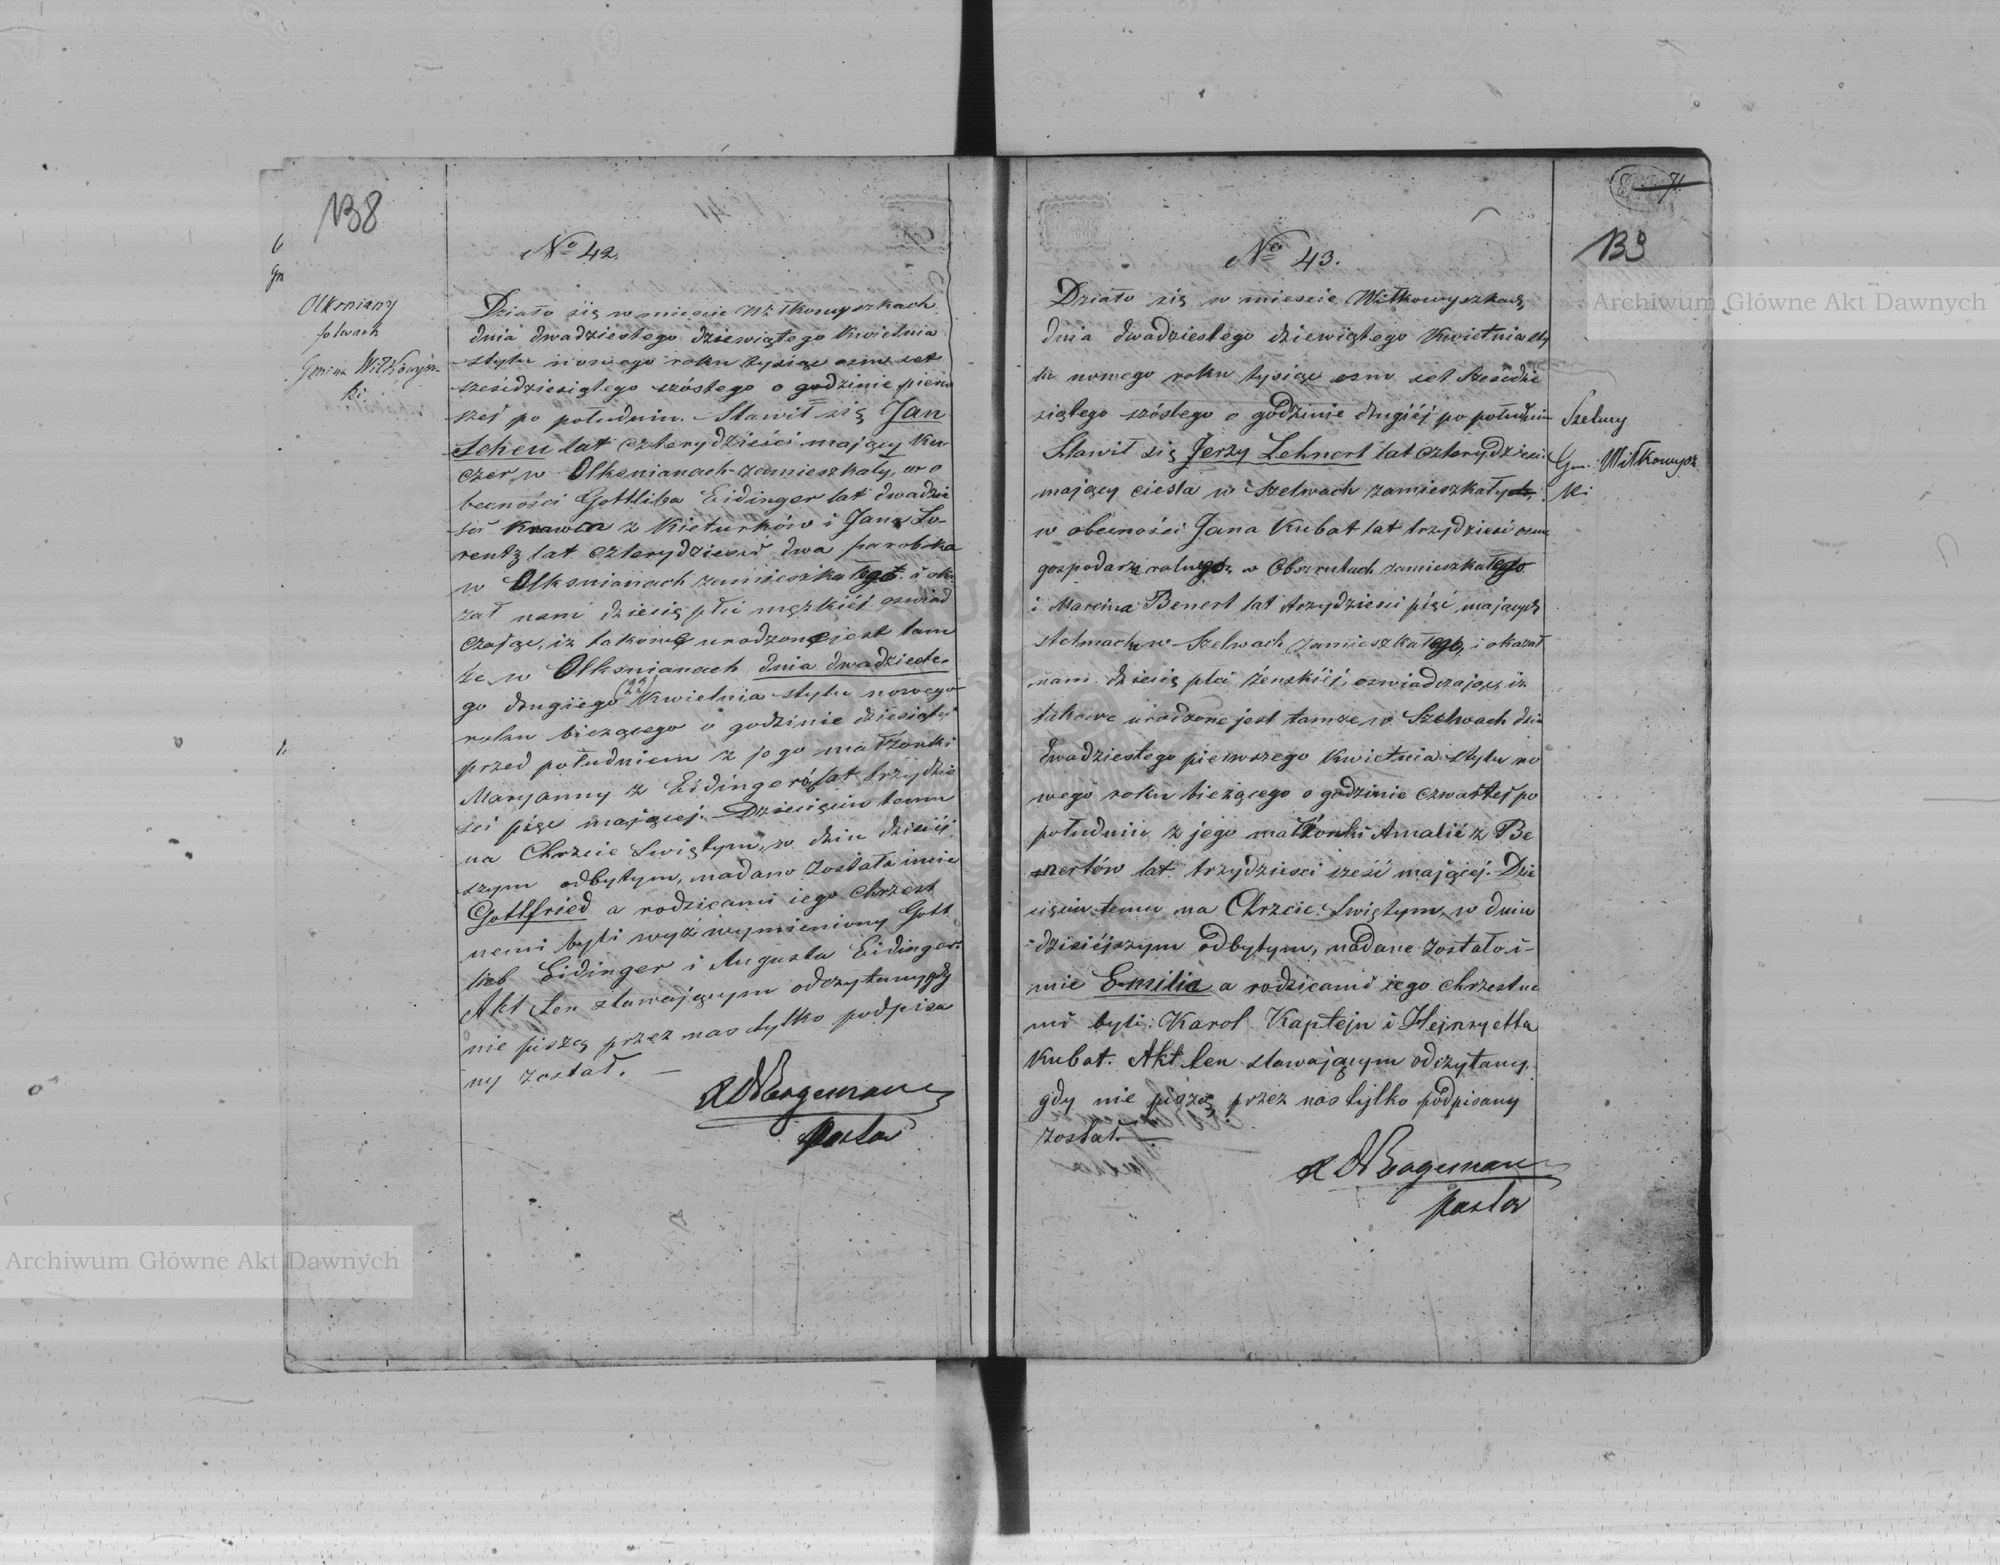 138
Olksniany
folwark
Gmina Wiłkowysz-
ki
No 42.
Działo się w miescie Wiłkowyszkach
dnia dwadziestego dziewiątego Kwietnia
stylu nowego roku tysiąc osm set
sześcdziesiątego szóstego o godzinie pierw
szej po południu. Stawił się Jan
Scheu lat czterydzieści mający Ku-
czer, w Olksnianach zamieszkały, w o
becności Gottliba Eidinger lat dwadzie
ści Krawca z Kieturków i Jana Lo-
rentz lat czterydzieści dwa parobka
w Olksnianach zamieszkałego i oka
zał nam dziecię płci męzkiéj oswiad
czając, iz takowe urodzone jest tam
że w Olksnianach dnia dwadzieste-
go drugiego (22) Kwietnia stylu nowego
roku bieżącego o godzinie dziesiątej
przed południem z jego małżonki
Maryanny z Eidingerów lat trzydzie
ści pięć mającej. Dziecięciu temu
na Chrzcie Swiętym, w dniu dzisiéj
szym odbytym, nadano zostało imie
Gottfried a rodzicami iego chrzest
nemi byli wyż wymieniony Gott
lieb Eidinger i Augusta Eidinger.
Akt ten stawającym odczytany, gdy
nie piszą przez nas tylko podpisa
ny został. —
Pastor
71
139
Szelwy
Gm. Wiłkowysz
ki
No 43.
Działo się w miescie Wiłkowyszkach
dnia dwadziestego dziewiątego Kwietnia sty
lu nowego roku tysiąc osm set sześcdzie
siątego szóstego o godzinie drugiéj po południu
Stawił się Jerzy Lehnert lat czterydzieści
mający ciesla w Szelwach zamieszkały,
w obecności Jana Kubat lat trzydzieści osm
gospodarza rolnego, w Obszrutach zamieszkałego
i Marcina Benert lat trzydzieści pięć mających
stelmacha w Szelwach zamieszkałego, i okazał
nam dziecię płci żeńskiéj, oswiadczając, iz
takowe urodzone jest tamze w Szelwach dnia
dwadziestego pierwszego Kwietnia stylu no
wego roku bieżącego o godzinie czwartej po
południu z jego małżonki Amalii z Be
nertów lat trzydzieści sześć mającej. Dzie
cięciu temu na Chrzcie Swiętym, w dniu
dzisiéjszym odbytym, nadane zostało i-
mie Emilia a rodzicami iego chrzestne
mi byli: Karol Kaptejn i Hejnryetta
Kubat. Akt ten stawającym odczytany,
gdy nie piszą przez nas tylko podpisany
został. —
Pastor
Archiwum Główne Akt Dawnych
Archiwum Główne Akt Dawnych